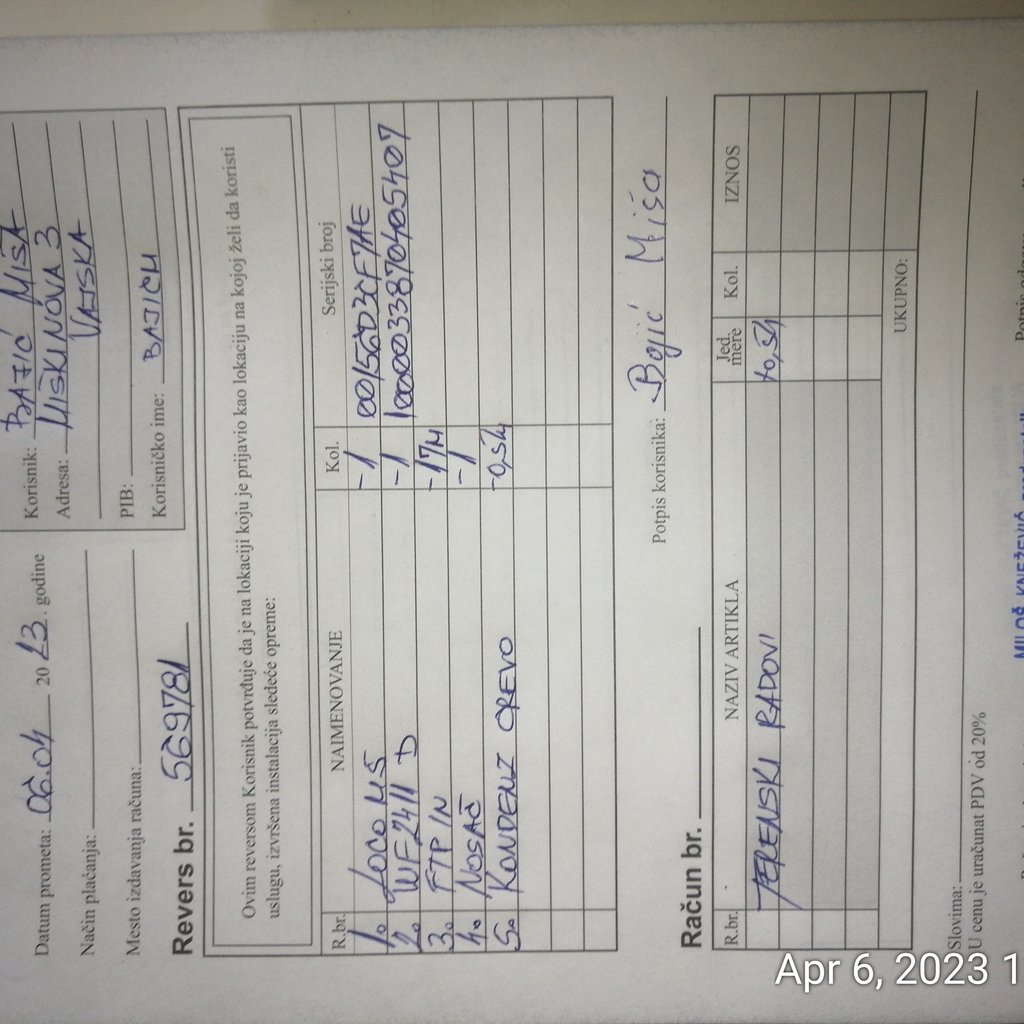 Datum prometa: 06.04 2023. godine
Način plaćanja:
Mesto izdavanja računa:
Korisnik: BAJIĆ MIŠA
Adresa: MIŠKINOVA 3
VAJSKA
PIB:
Korisničko ime: BAJICM
Revers br. 569781
Ovim reversom Korisnik potvrđuje da je na lokaciji koju je prijavio kao lokaciju na kojoj želi da koristi
uslugu, izvršena instalacija sledeće opreme:
R.br. NAIMENOVANJE Kol. Serijski broj
1. LOCO M5 -1 00156D3CF7AE
2. WF2411 D -1
3. FTP IN -17M
4. NOSAČ -1
5. KONDENZ CREVO -0,5M
Potpis korisnika: Bajić Miša
Račun br.
R.br. NAZIV ARTIKLA Jed. mere Kol. IZNOS
TERENSKI RADOVI
UKUPNO:
Slovima:
U cenu je uračunat PDV od 20%
MILOŠ KNEŽEVIĆ
Apr 6, 2023 1